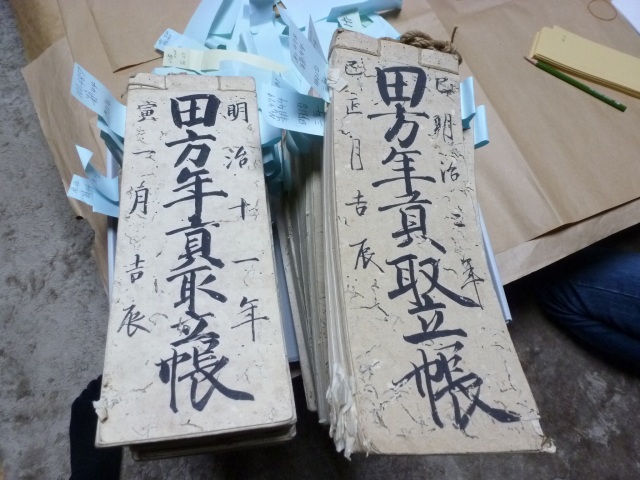 明治十一年
田方年貢取立帳
寅一月吉辰
巳明治二年
田方年貢取立帳
巳正月吉辰